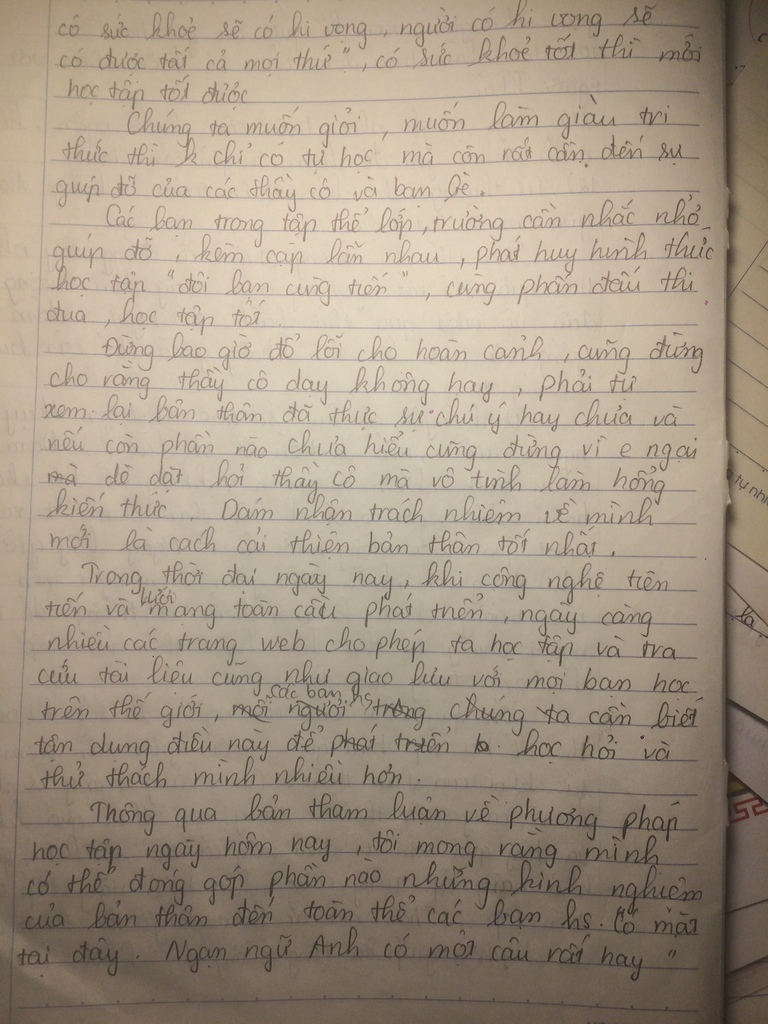 có sức khoẻ sẽ có hi vọng, người có hi vọng sẽ
có được tất cả mọi thứ", có sức khoẻ tốt thì mới
học tập tốt được
Chúng ta muốn giỏi, muốn làm giàu tri
thức thì k chỉ có tự học mà còn rất cần đến sự
giúp đỡ của các thầy cô và bạn bè.
Các bạn trong tập thể lớp, trường cần nhắc nhở
giúp đỡ, kèm cặp lẫn nhau, phát huy hình thức
học tập "đôi bạn cùng tiến", cùng phấn đấu thi
đua, học tập tốt.
Đừng bao giờ đổ lỗi cho hoàn cảnh, cũng đừng
cho rằng thầy cô dạy không hay, phải tự
xem lại bản thân đã thực sự chú ý hay chưa và
nếu còn phần nào chưa hiểu cũng đừng vì e ngại
mà dè dặt hỏi thầy cô mà vô tình làm hổng
kiến thức. Dám nhận trách nhiệm về mình
mới là cách cải thiện bản thân tốt nhất.
Trong thời đại ngày nay, khi công nghệ tiên
tiến và lưới mạng toàn cầu phát triển, ngày càng
nhiều các trang web cho phép ta học tập và tra
cứu tài liệu cũng như giao lưu với mọi bạn học
trên thế giới, mỗi người các bạn hs trong chúng ta cần biết
tận dụng điều này để phát triển b. học hỏi và
thử thách mình nhiều hơn.
Thông qua bản tham luận về phương pháp
học tập ngày hôm nay, tôi mong rằng mình
có thể đóng góp phần nào những kinh nghiệm
của bản thân đến toàn thể các bạn hs. Có mặt
tại đây. Ngạn ngữ Anh có một câu rất hay "
tự nhi